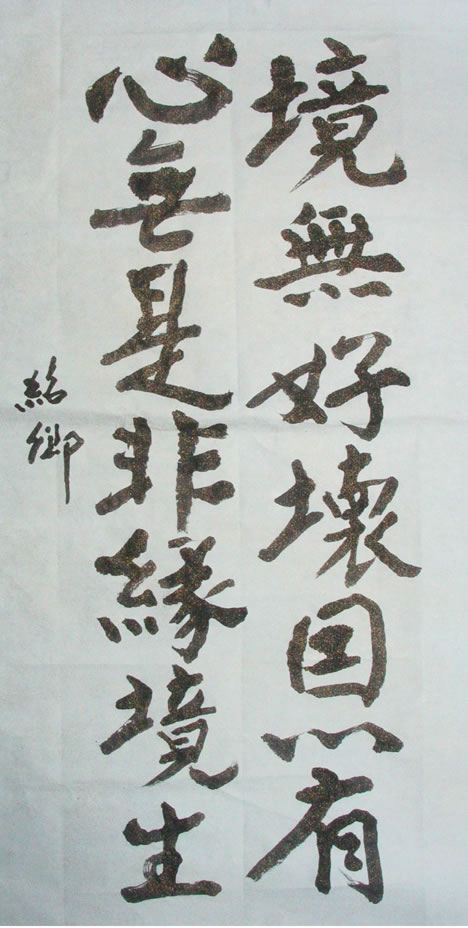 境無好壞因心有
心無是非緣境生
銘鄉